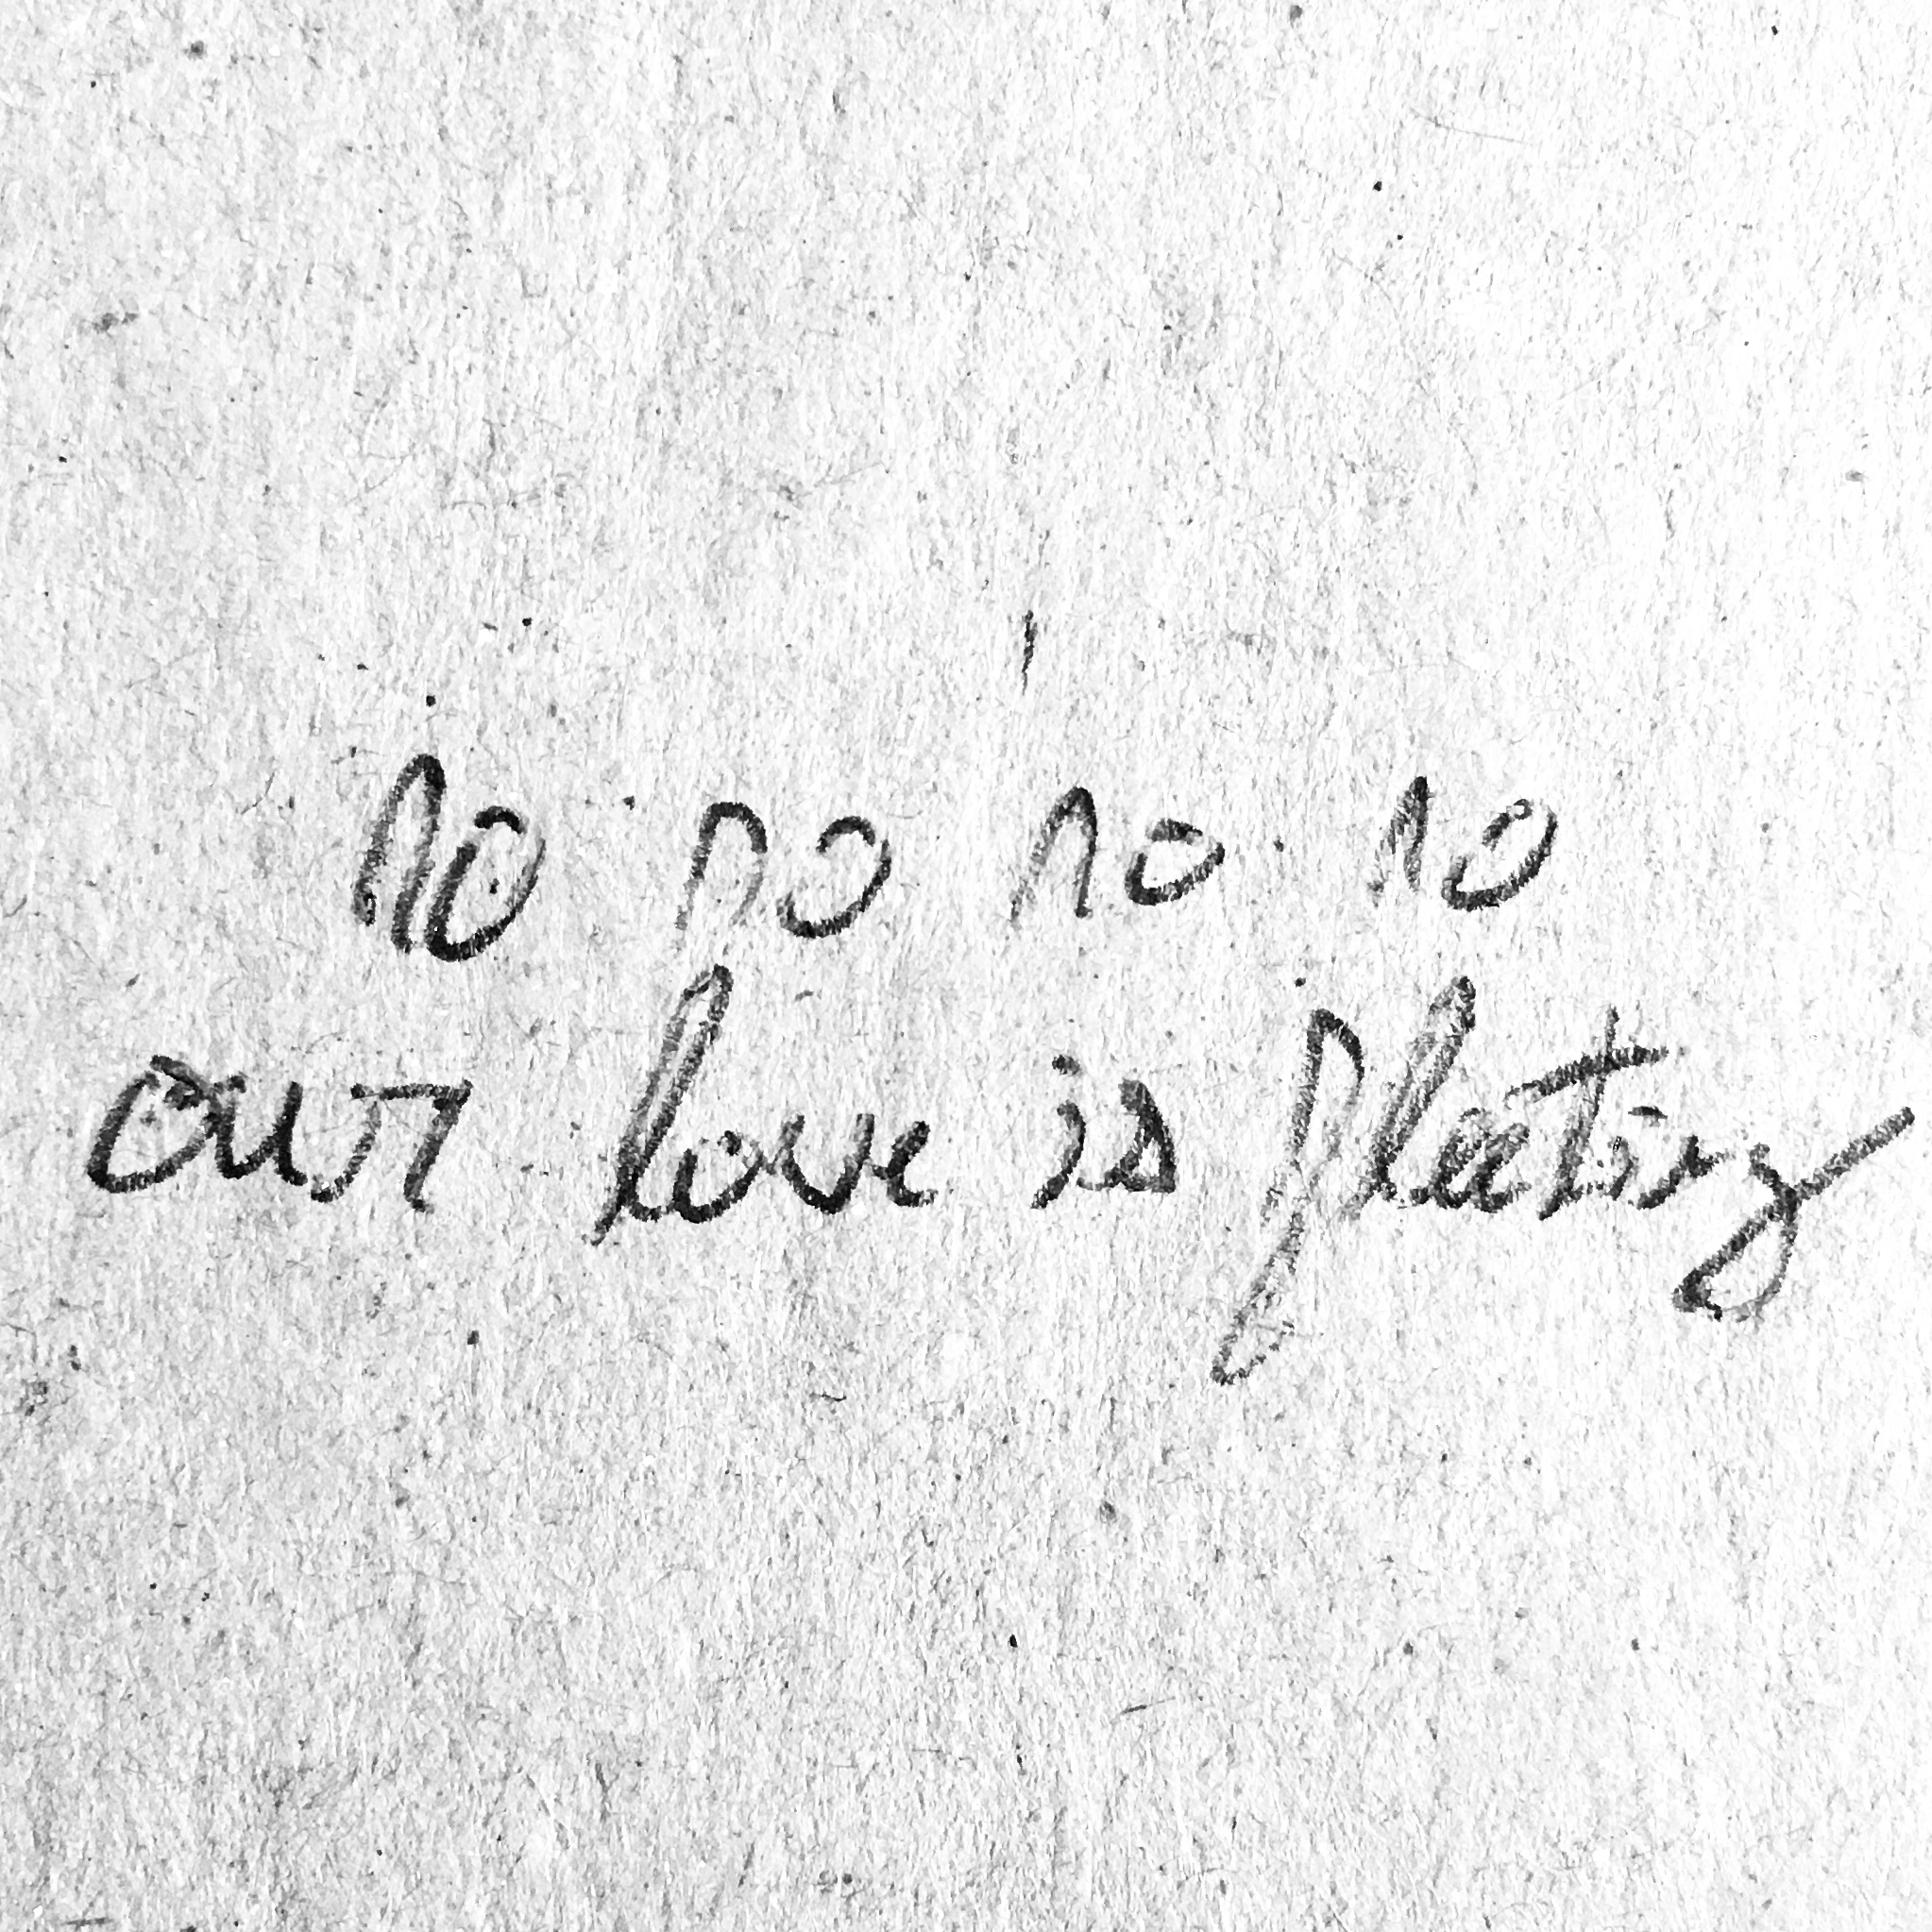 no no no no
our love is fleeting